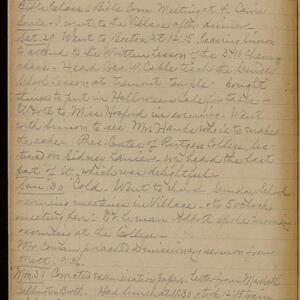 Bible Class & Bible Com. Meeting at
I went to the Village after dinner.
Sat. 29. Went to Boston at 12.15, leaving
to attend to the Written lesson of the Chem.
class - Heard Geo. W. Cable teach the Sunday
School lesson at Tremont Temple. Bought
things to put in Halloween cake for table.
Wrote to Miss Hosford in evening. Went
with to see Mrs. to make
the cake. Pres. Gates of Rutgers College, lec-
tured on Sidney Lanier. We heard the last
part of it, which was delightful.
Sun. 30 Cold. Went to church, Sunday School
evening meetings in Village & to 5 o'clock
meeting here. Dr. Lyman Abbott spoke morning
& evening at the College.
Mr. Cowan preached a missionary sermon from
Matt. 9:36.
Mon. 31 Corrected examination papers. Letter from
Both. Had lunch at 11.30